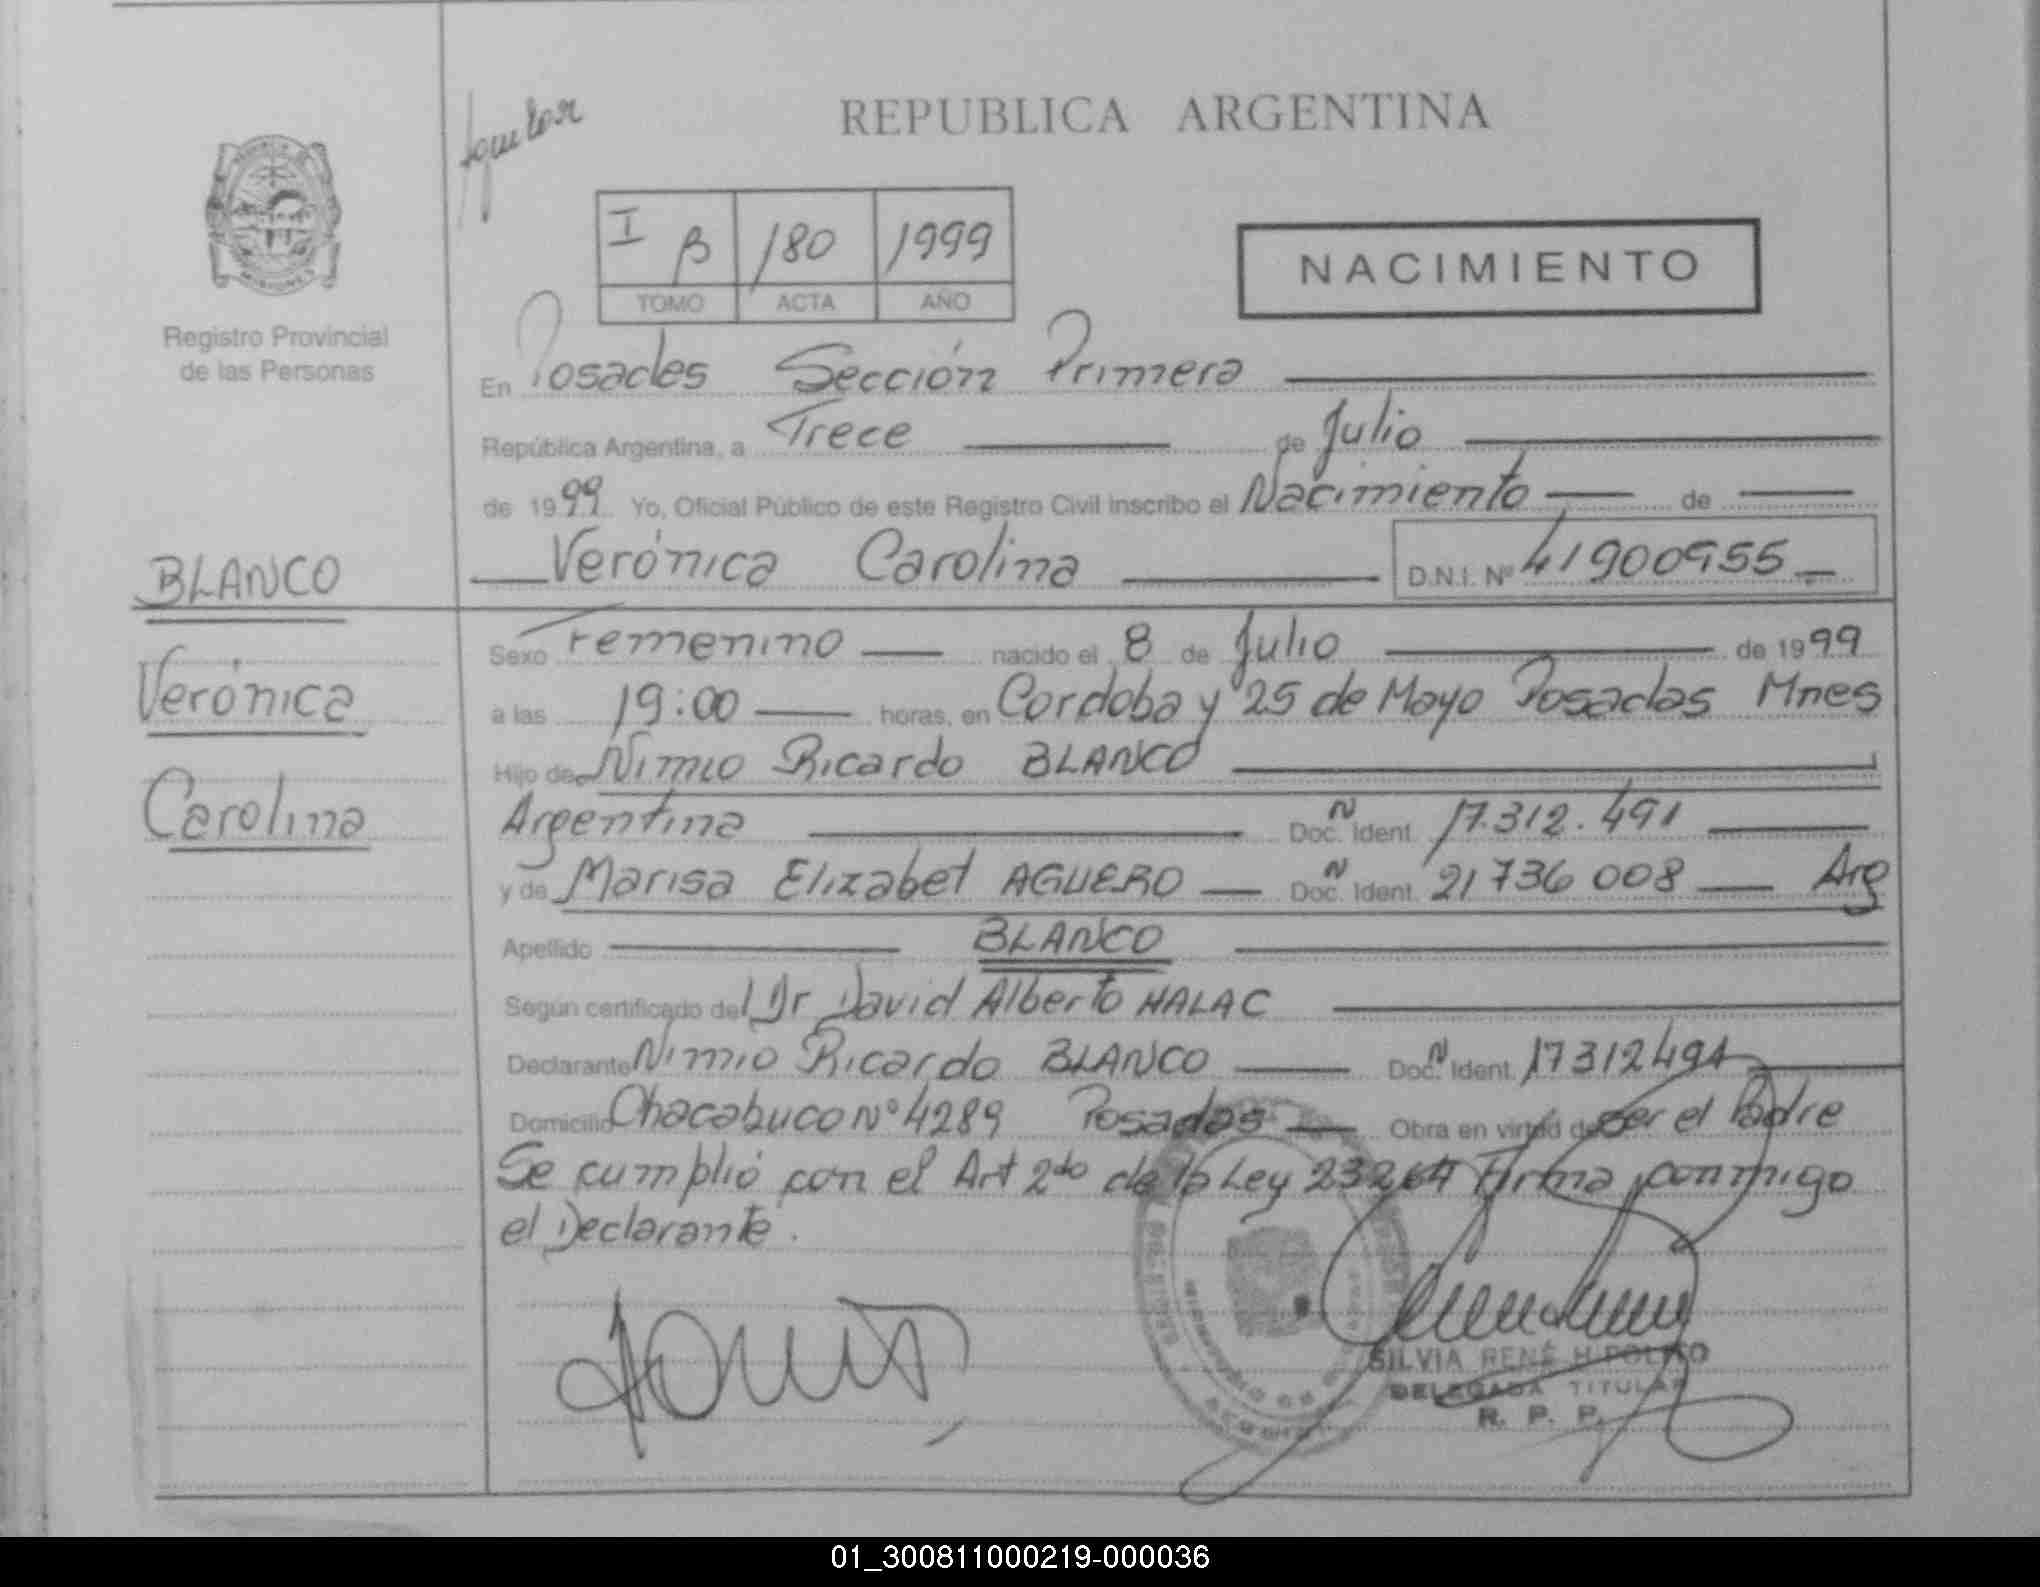 Aguilar
REPUBLICA ARGENTINA
I B 180 1999
TOMO ACTA AÑO
NACIMIENTO
Registro Provincial
de las Personas
En Posadas Sección Primera
República Argentina, a Trece de Julio
de 1999 Yo, Oficial Público de este Registro Civil inscribo el Nacimiento de
Verónica Carolina D.N.I. Nº 41900955
BLANCO
Verónica
Carolina
Sexo Femenino nacido el 8 de Julio de 1999
a las 19:00 horas, en Cordoba y 25 de Mayo Posadas Mnes
Hijo de Nimio Ricardo BLANCO
Argentina Doc. Ident. 17.312.491
y de Marisa Elizabet AGUERO Doc. Ident. 21736008 Arg
Apellido BLANCO
Según certificado del Dr David Alberto HALAC
Declarante Nimio Ricardo BLANCO Doc. Ident. 17312491
Domicilio Chacabuco Nº 4289 Posadas Obra en virtud de ser el Padre
Se cumplió con el Art 2do de la Ley 23264 Firma conmigo
el Declarante.
SILVIA RENÉ HIPOLITO
DELEGADA TITULAR
R. P. P.
01_300811000219-000036